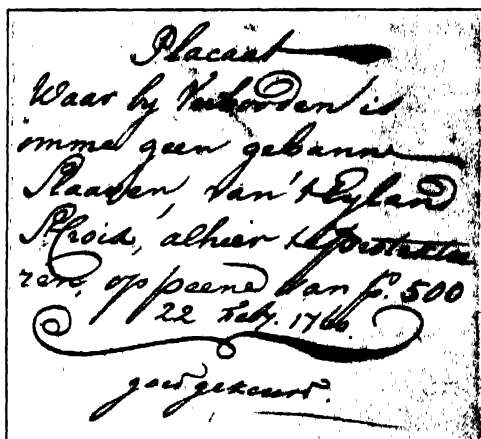 Placaat
Waar by Verbooden is
omme geen gebanne
Slaaven, van 't Eyland
St. Croix, alhier te protectee
ren, op peene van p. 500
22 Feby. 1760.
goed gekeurd.